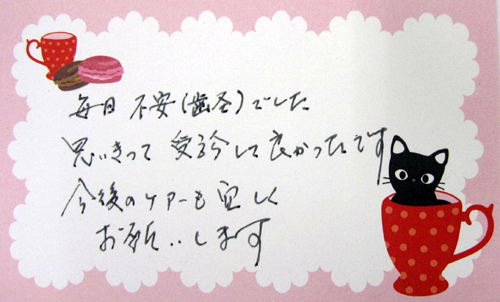 毎日 不安(歯茎)でした
思いきって 受診して良かったです
今後のケアーも宜しく
お願いします